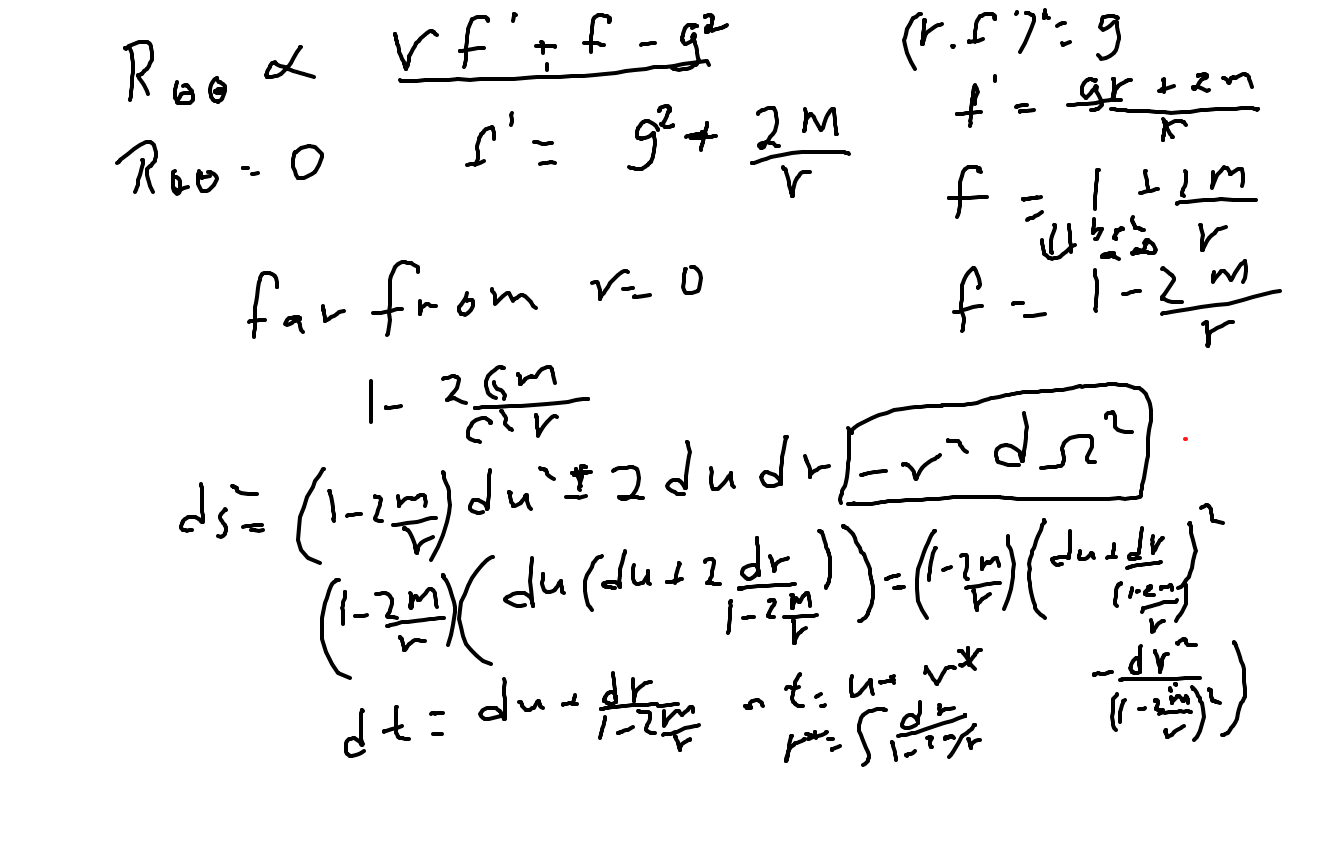 R_θθ ∝ (r f' + f - g²)
(r . f')' = g
f' = (gr + 2m)/r
R_θθ = 0
f' = g² + 2M/r
f = 1 + 2m/r
⇓
far from r = 0
f = 1 - 2m/r
1 - 2Gm/(c² r)
ds² = (1 - 2m/r) du² ± 2 du dr - r² dΩ²
(1 - 2m/r)(du(du + 2 dr/(1 - 2m/r))) = (1 - 2m/r)((du + dr/(1 - 2m/r))²
- dr²/(1 - 2m/r)²)
dt = du + dr/(1 - 2m/r) → t = u + r*
r* = ∫ dr/(1 - 2m/r)